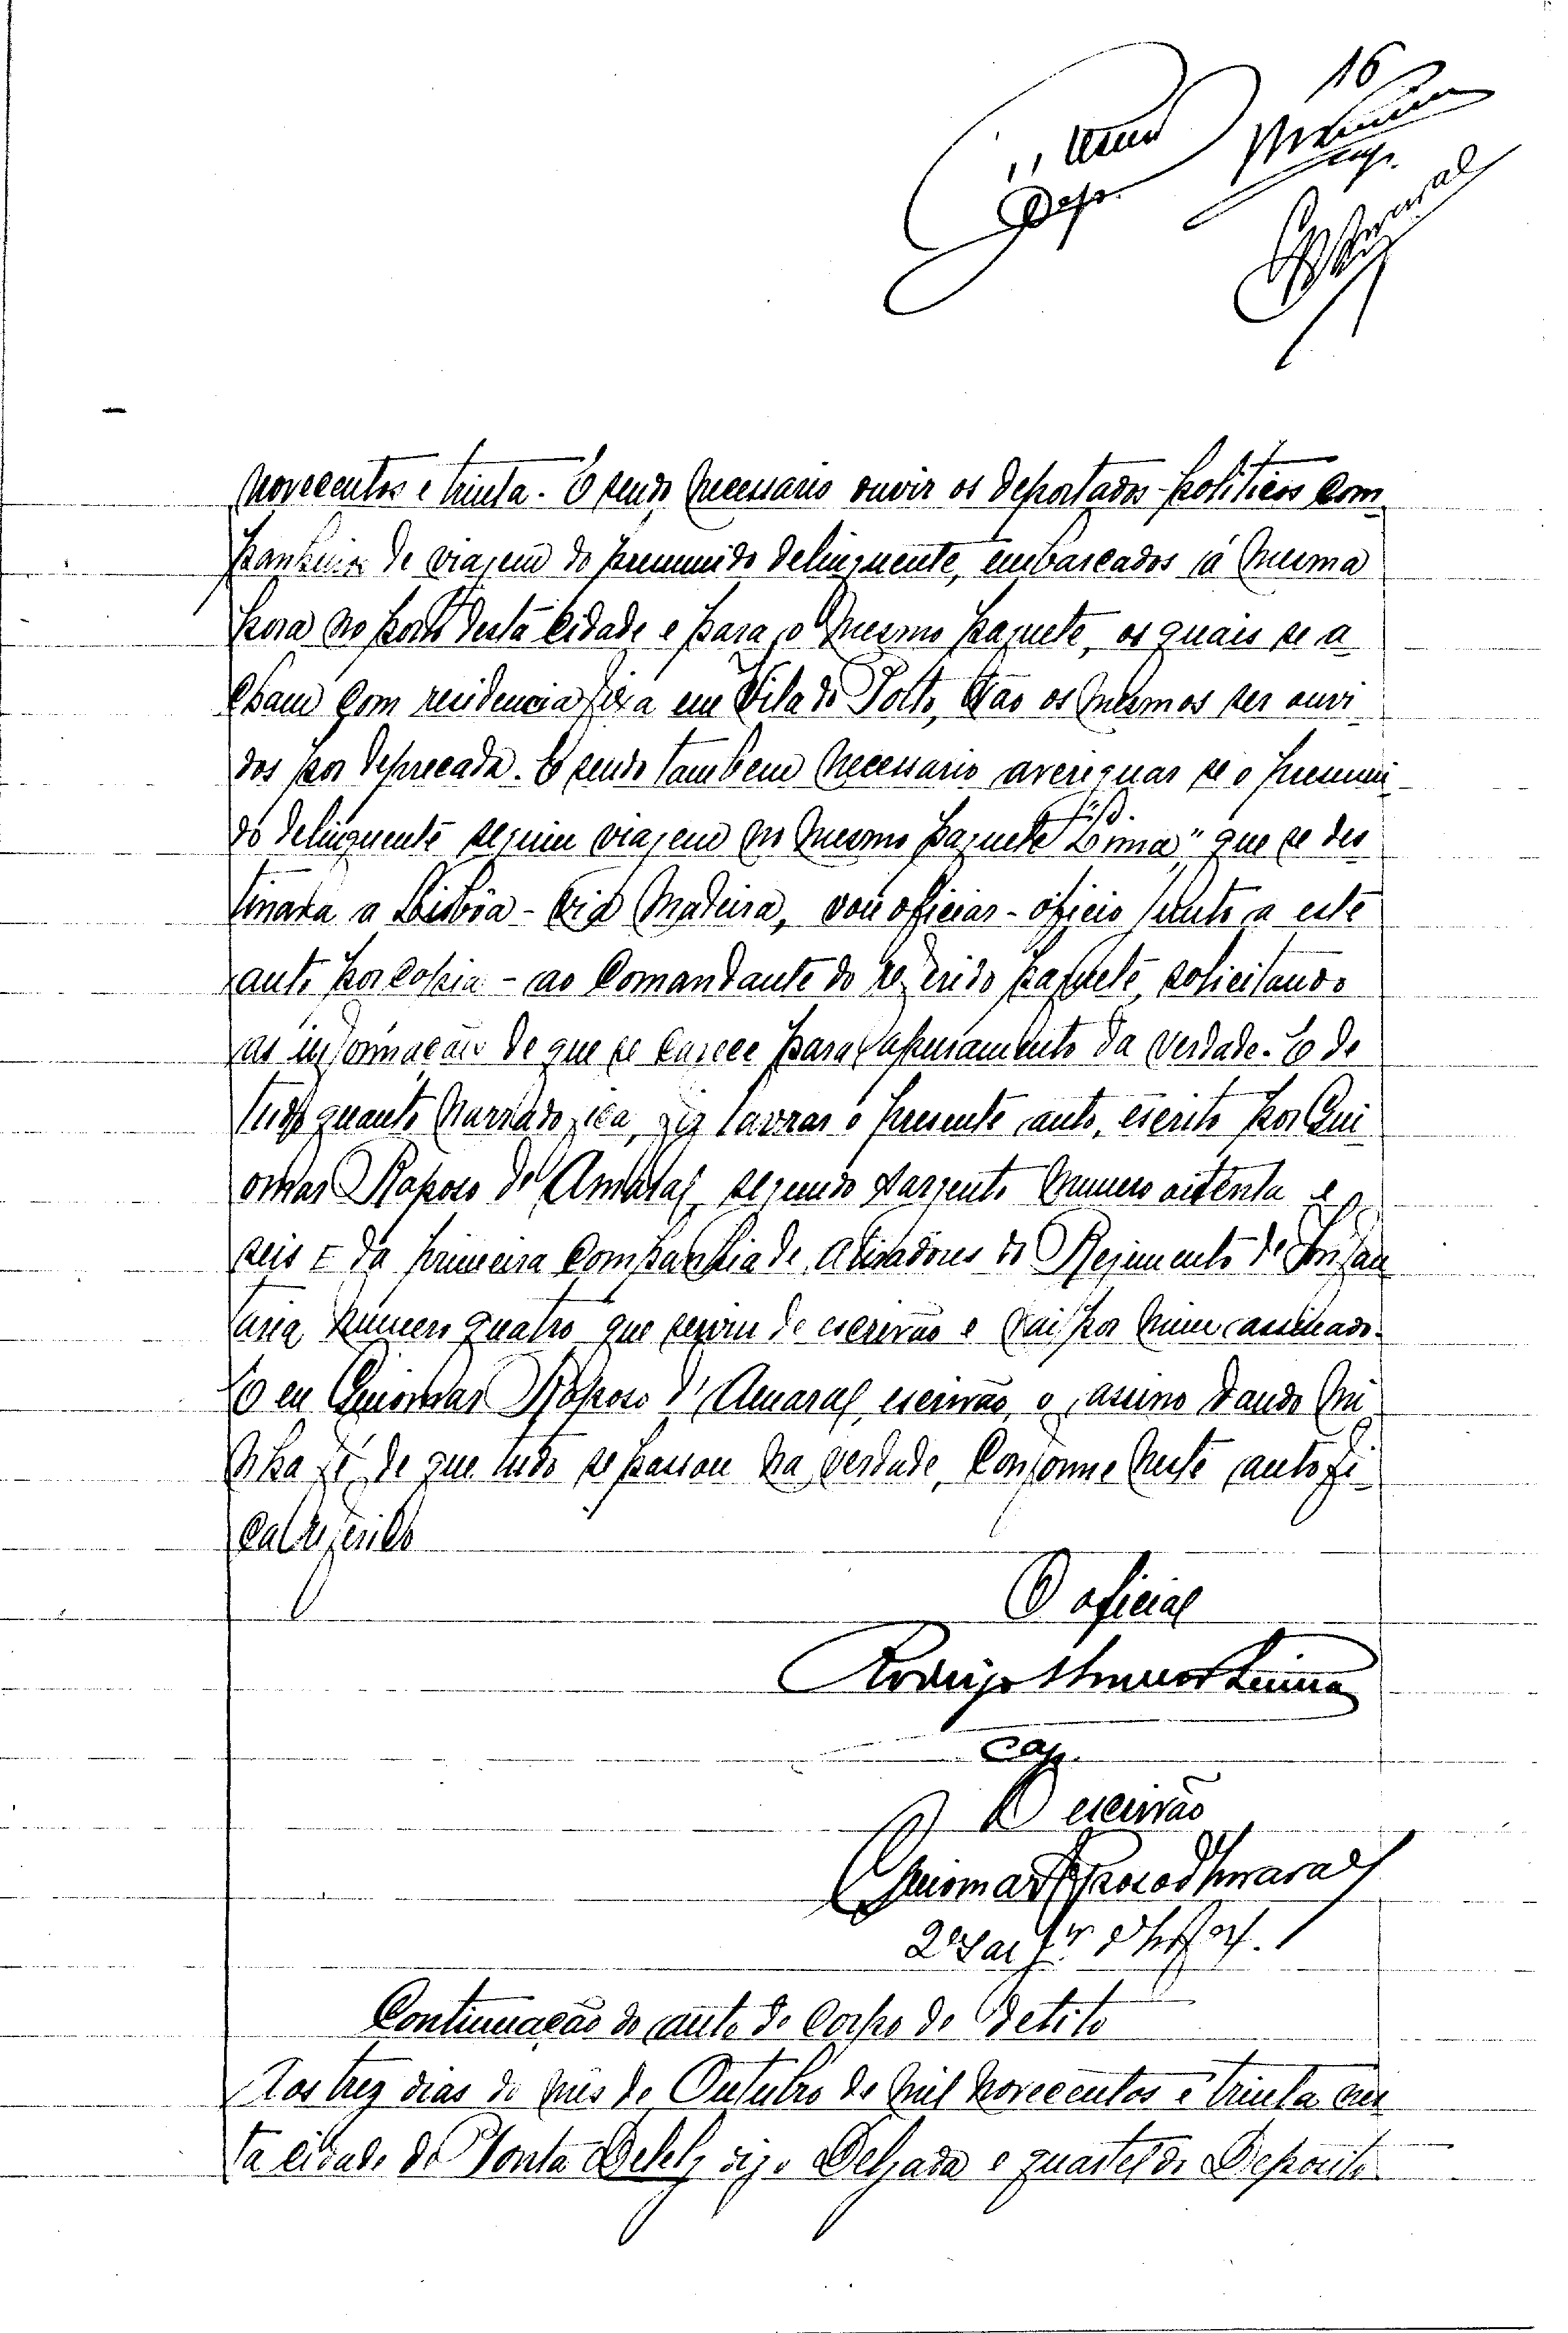 16
novecentos e trinta. E sendo necessario ouvir os deportados politicos com
panheiros de viagem do presumido delinquente, embarcados á mesma
hora no porto desta cidade e para o mesmo paquete, os quais se a
cham com residencia fixa em Vila do Porto, vão os mesmos ser ouvi
dos por deprecada. E sendo tambem necessario averiguar se o presumi
do delinquente seguiu viagem no mesmo paquete "Lima," que se des
tinava a Lisbôa - via Madeira, vou oficiar - oficio junto a este
auto por copia - ao Comandante do referido paquete, solicitando
as informações de que se carece para apuramento da verdade. E de
tudo quanto narrado fica, fiz lavrar o presente auto, escrito por Gui
omar Raposo d'Amaral, segundo sargento numero oitenta e
seis E da primeira Companhia de atiradores do Regimento de Infan
taria numero quatro que serviu de escrivão e vai por mim assinado.
E eu Guiomar Raposo d'Amaral, escrivão, o assino dando mi
nha fé de que tudo se passou na verdade, conforme neste auto fi
ca referido
O oficial
Rodrigo
cap.
O escrivão
Guiomar Raposo d'Amaral
2º Sargt.º
Continuação do auto de Corpo de Delito
Aos trez dias do mês de Outubro de mil novecentos e trinta nes
ta cidade de Ponta Delg, digo Delgada e quartel do Deposito